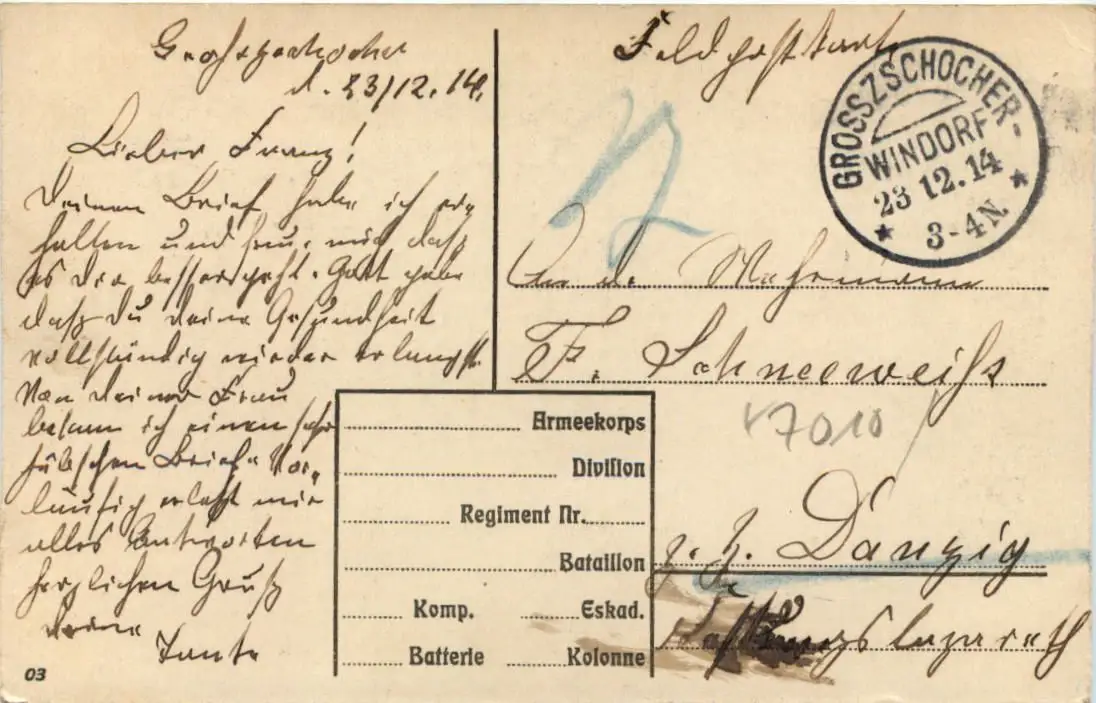 Großzschocher
d. 23/12. 14.
Lieber Franz!
Deinen Brief habe ich er-
halten und freue mich daß
es dir besser geht. Gott gebe
daß Du deine Gesundheit
vollständig wieder erlangst.
Von deiner Frau
bekam ich einen sehr
hübschen Brief. Vor-
läufig erlaßt mir
alles Antworten
herzlichen Gruß
deine
Tante
03
Feldpostkarte
GROSSZSCHOCHER-
WINDORF
23 12.14
3-4N.
An de Wehrmann
F. Schneeweiß
7010
z. Z. Danzig
Festungslazareth
Armeekorps
Division
Regiment Nr.
Bataillon
Komp. Eskad.
Batterie Kolonne